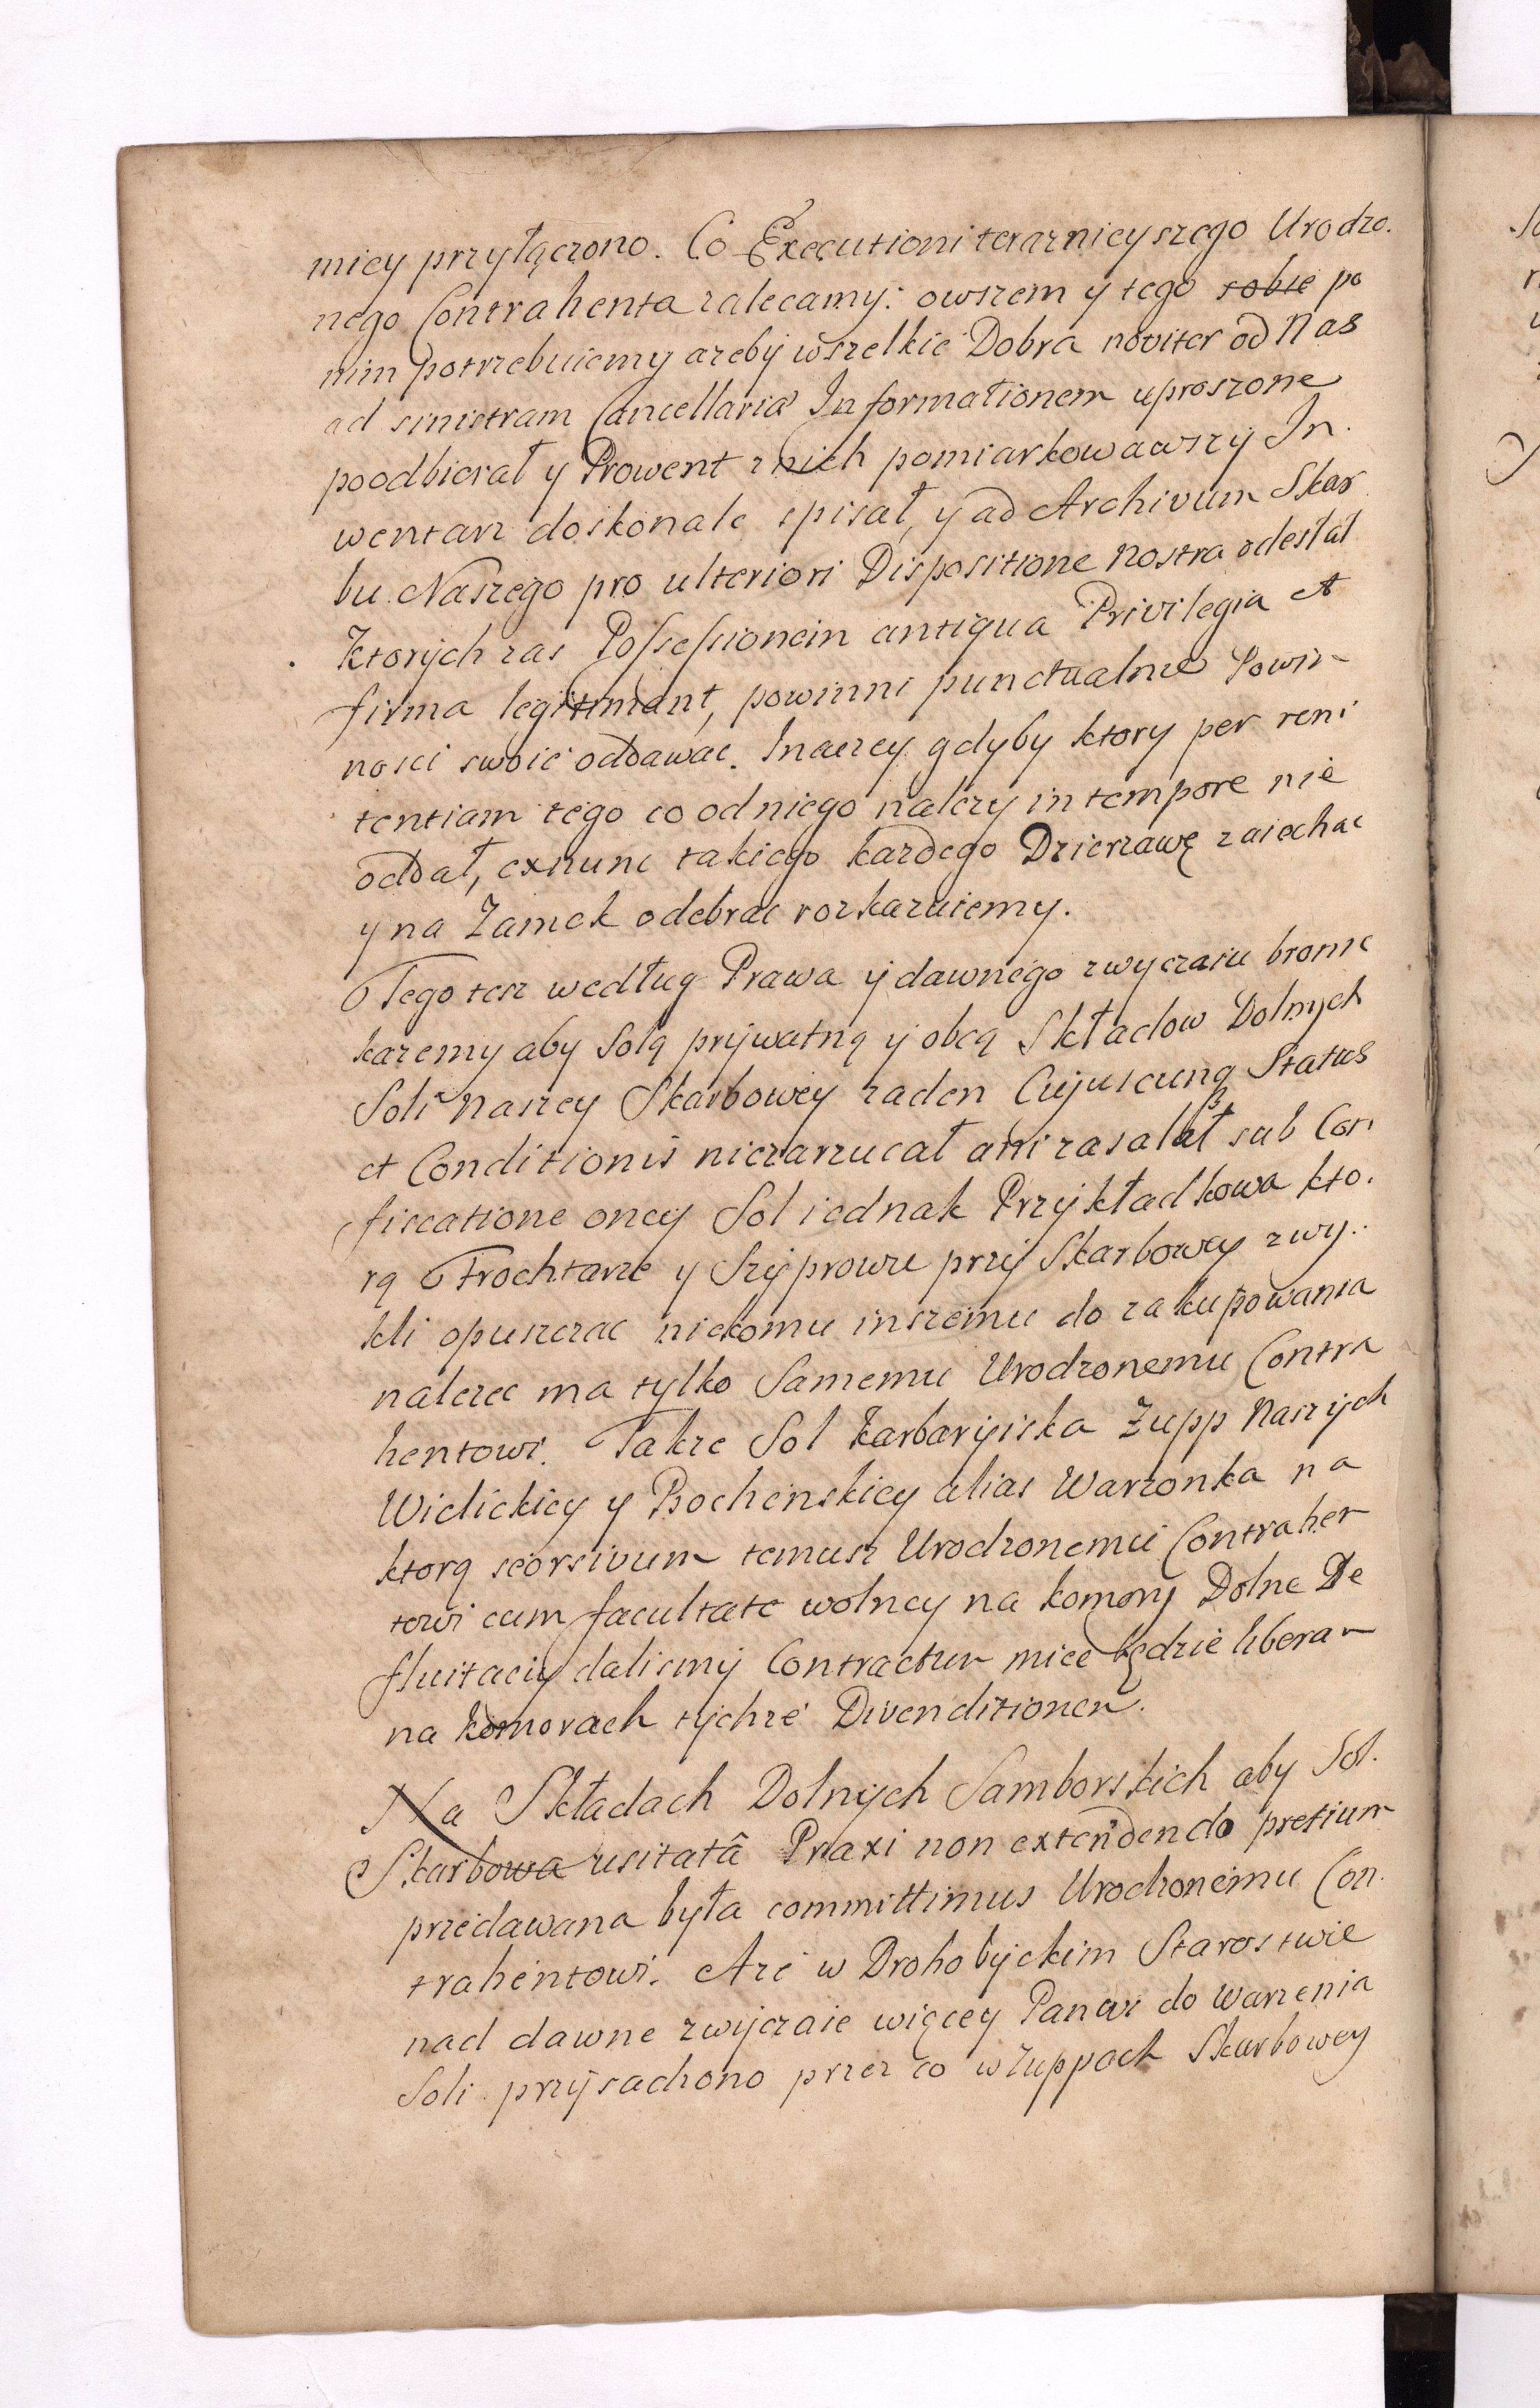 miey przyłączono. Co Executioni teraznieyszego Urodzo.
nego Contrahenta zalecamy: owszem y tego sobie po
nim potrzebuiemy azeby wszelkie Dobra noviter od Nas
ad sinistram Cancellariæ Informationem uproszone
poodbierał y Prowent z nich pomiarkowawszy In.
wentarz doskonale spisał, y ad Archivum Skar
bu Naszego pro ulteriori Dispositione nostra odesłał
Ktorych zas Possessionem antiqua Privilegia et
firma legitimant, powinni punctualnie Powin
nosci swoie oddawac. Inaczey gdyby ktory per reni
tentiam tego co od niego nalezy in tempore nie
oddał, exnunc takiego kazdego Dzierzawę zaiechac
y na Zamek odebrac rozkazuiemy.
Tego tesz według Prawa y dawnego zwyczaiu bronic
kazemy aby Solą prywatną y obcą Składow Dolnych
Soli naszey Skarbowey zaden Cujuscunq Status
et Conditionis niezarzucał ani zasalał sub Con
fiscatione oney Sol iednak Przykładkowa kto.
rą Frochtarze y Szyprowie przy Skarbowey zwy.
kli opuszczac nikomu inszemu do zakupowania
nalezec ma tylko Samemu Urodzonemu Contra
hentowi. Takze Sol Karbaryiska Zupp Naszych
Wielickiey y Bochenskiey alias Warzonka na
ktorą seorsivum temusz Urodzonemu Contrahen
towi cum facultate wolney na komory Dolne De
fluitaciy dalismy Contractum miec będzie liberam
na komorach tychze Divenditionem.
Na Składach Dolnych Samborskich aby Sol.
Skarbowa usitatâ Praxi non extendendo pretium
przedawana była committimus Urodzonemu Con.
trahentowi. Aze w Drohobyckim Starostwie
nad dawne zwyczaie więcey Panwi do Warzenia
Soli przysadzono przez co w Zuppach Skarbowey